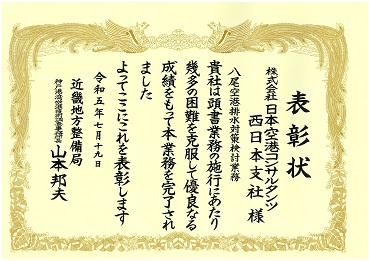 表彰状
株式会社日本空港コンサルタンツ
西日本支社 様
八尾空港排水対策検討業務
貴社は頭書業務の施行にあたり
幾多の困難を克服して優良なる
成績をもって本業務を完了され
ました
よってここにこれを表彰します
令和五年七月十九日
近畿地方整備局
神戸港湾空港技術調査事務所長
山本邦夫